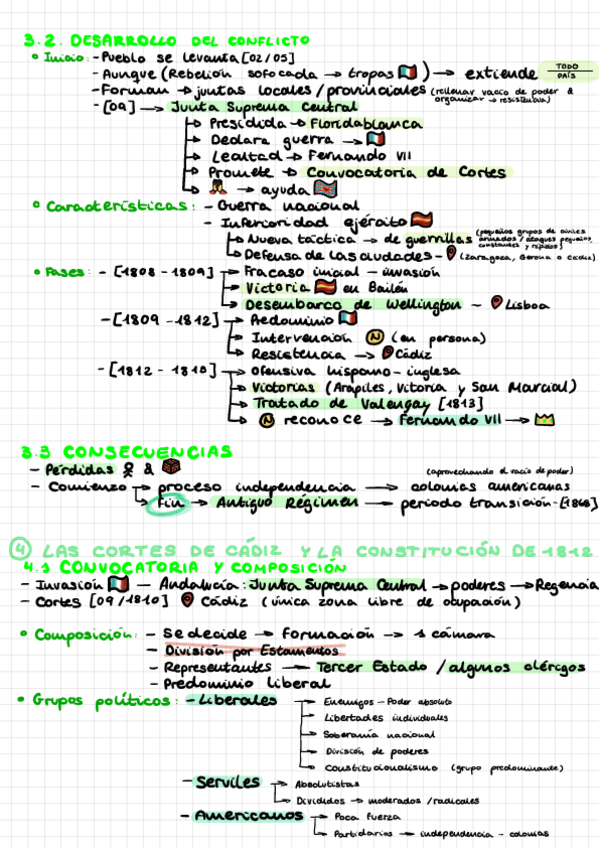 3.2. DESARROLLO DEL CONFLICTO
• Inicio: - Pueblo se levanta [02/05]
- Aunque (Rebelión sofocada → tropas) → extiende TODO PAÍS
- Forman → juntas locales/provinciales (rellenar vacío de poder & organizar → resistencia)
- [09] → Junta Suprema Central
→ Presidida → Floridablanca
→ Declara guerra →
→ Lealtad → Fernando VII
→ Promete → Convocatoria de Cortes
→ → ayuda
• Características: - Guerra nacional
- Inferioridad ejército
→ Nueva táctica → de guerrillas (pequeños grupos de civiles armados / ataques pequeños, constantes y rápidos)
→ Defensa de las ciudades - (Zaragoza, Gerona o Cádiz)
• Fases: - [1808 - 1809] → Fracaso inicial - invasión
→ Victoria en Bailén
→ Desembarco de Wellington - Lisboa
- [1809 - 1812] → Predominio
→ Intervención N (en persona)
→ Resistencia → Cádiz
- [1812 - 1813] → Ofensiva hispano - inglesa
→ Victorias (Arapiles, Vitoria y San Marcial)
→ Tratado de Valençay [1813]
→ N reconoce → Fernando VII →
3.3 CONSECUENCIAS
- Pérdidas &
- Comienzo → proceso independencia → colonias americanas (aprovechando el vacío de poder)
→ Fin → Antiguo Régimen → periodo transición - [1868]
4 LAS CORTES DE CÁDIZ Y LA CONSTITUCIÓN DE 1812
4.1 CONVOCATORIA Y COMPOSICIÓN
- Invasión — Andalucía: Junta Suprema Central → poderes → Regencia
- Cortes [09/1810] Cádiz (única zona libre de ocupación)
• Composición: - Se decide → Formación → 1 cámara
- División por Estamentos
- Representantes → Tercer Estado / algunos clérigos
- Predominio liberal
• Grupos políticos: - Liberales → Enemigos - Poder absoluto
→ Libertades individuales
→ Soberanía nacional
→ División de poderes
→ Constitucionalismo (grupo predominante)
- Serviles → Absolutistas
→ Divididos → moderados / radicales
- Americanos → Poca fuerza
→ Partidarios → independencia - colonias